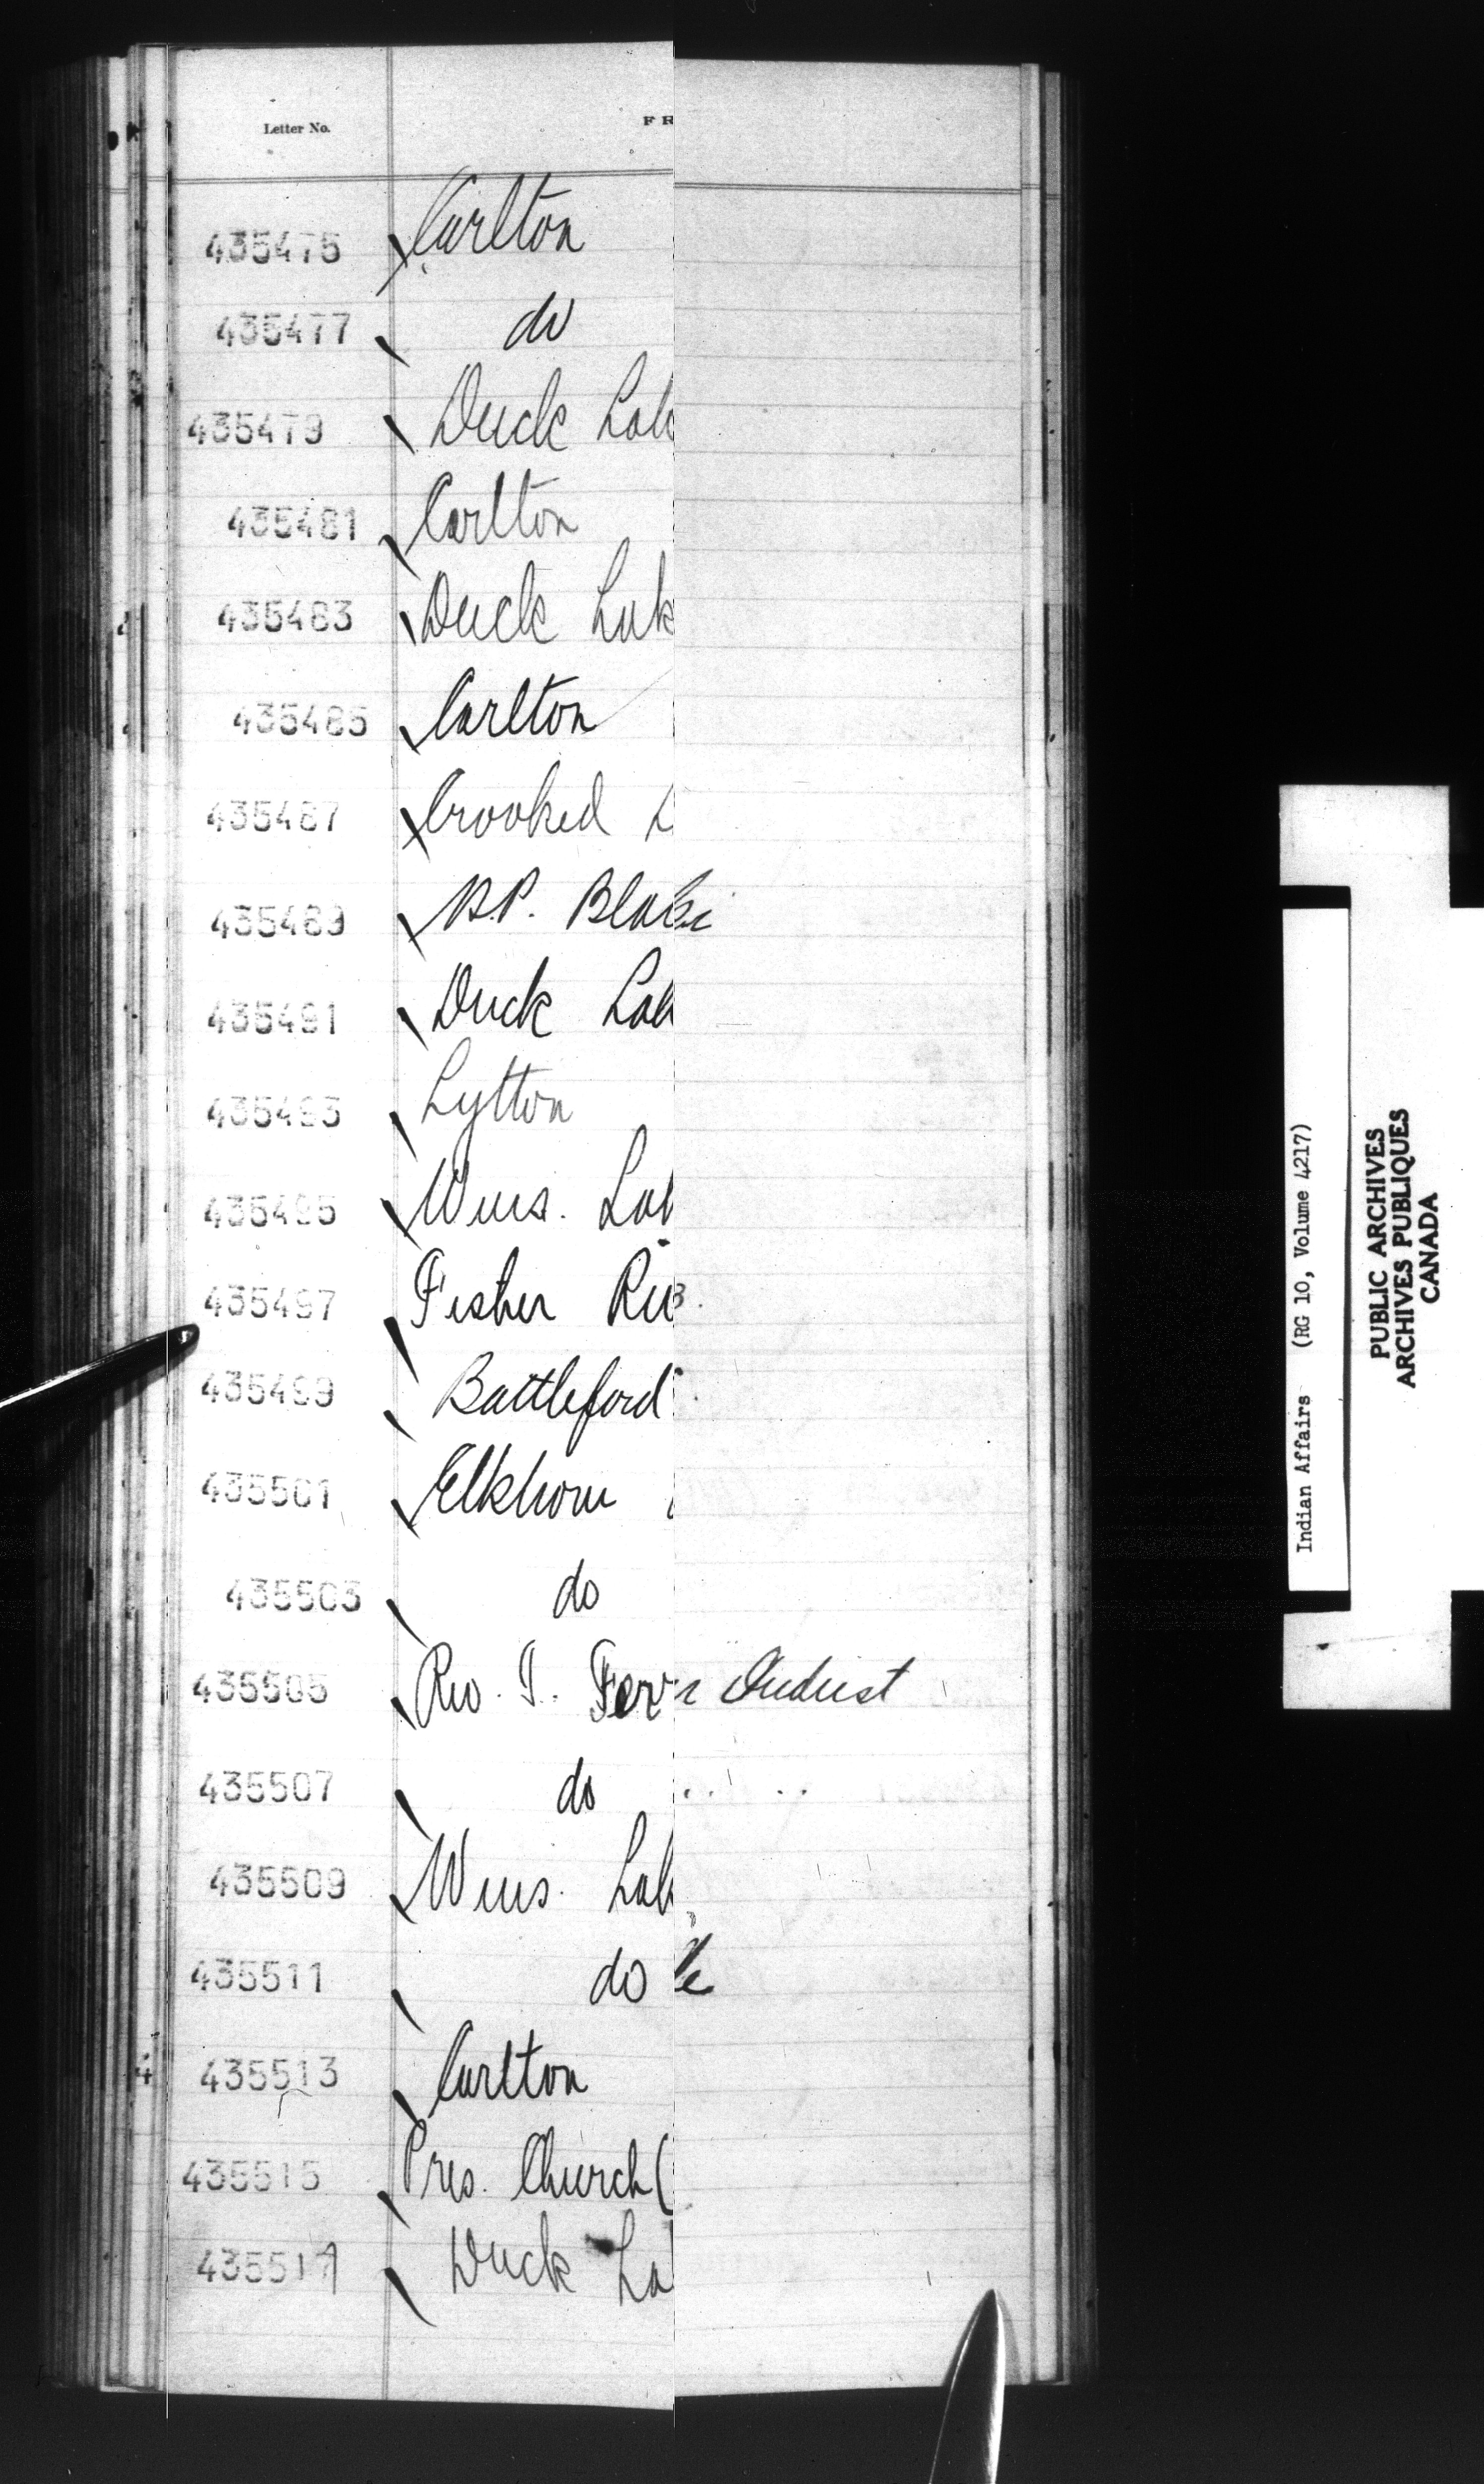 Letter No. FR
435475 Carlton
435477 do
435479 Duck Lak
435481 Carlton
435483 Duck Lak
435485 Carlton
435487 Crooked L
435489 B.P. Blak
435491 Duck Lak
435493 Lytton
435495 Wms. Lak
435497 Fisher Riv
435499 Battleford
435501 Elkhorn
435503 do
435505 Rev. J. Ferr
435507 do
435509 Wms. Lak
435511 do
435513 Carlton
435515 Pres. Church (
435517 Duck La
Indian Affairs (RG 10, Volume 4217)
PUBLIC ARCHIVES
ARCHIVES PUBLIQUES
CANADA